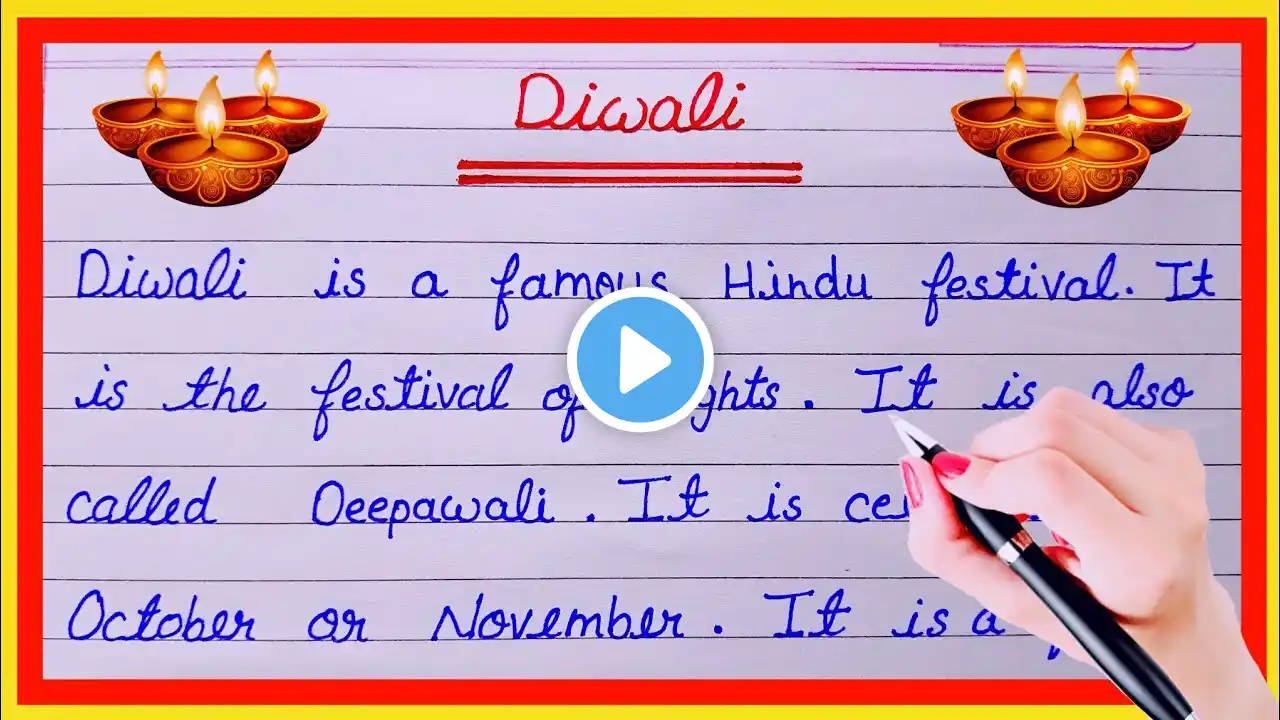 Diwali
Diwali is a famous Hindu festival. It
is the festival of lights. It is also
called Deepawali. It is
October or November. It is a